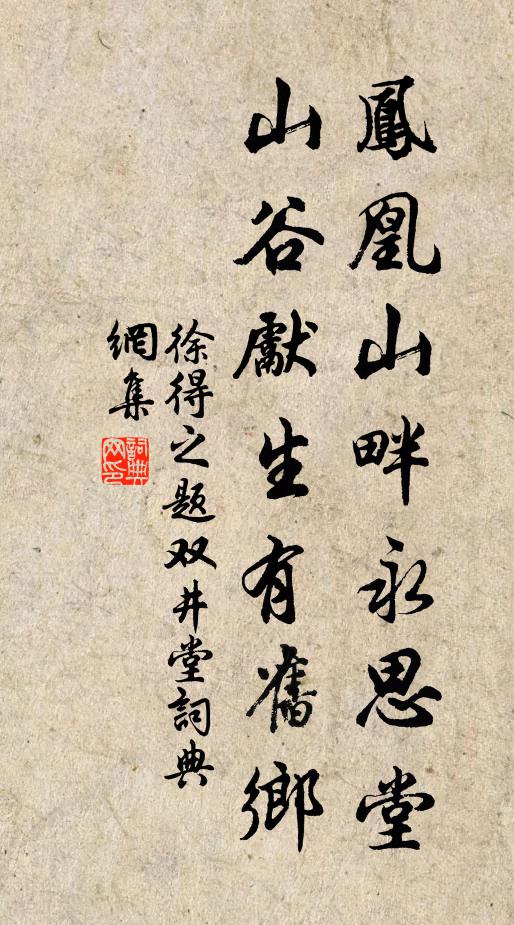 鳳凰山畔永思堂
山谷獻生有舊鄉
徐得之題双井堂詞典
網集
詞典网印